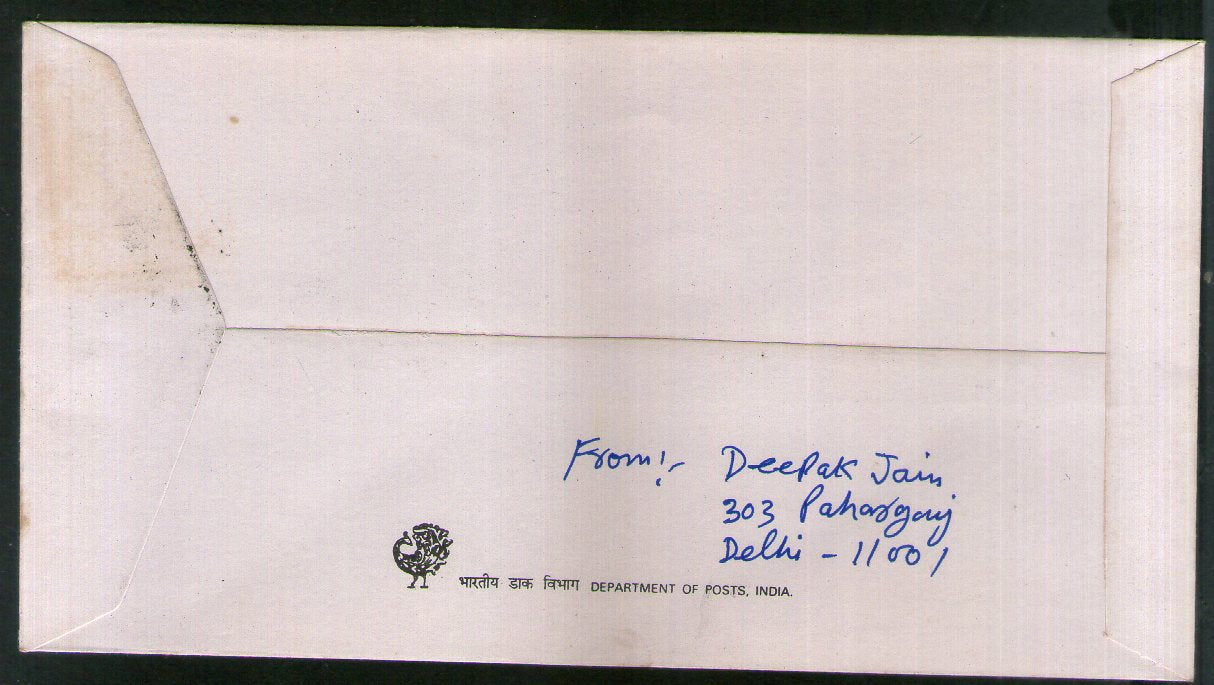 From:- Deepak Jain
303 Paharganj
Delhi - 11001
भारतीय डाक विभाग DEPARTMENT OF POSTS, INDIA.